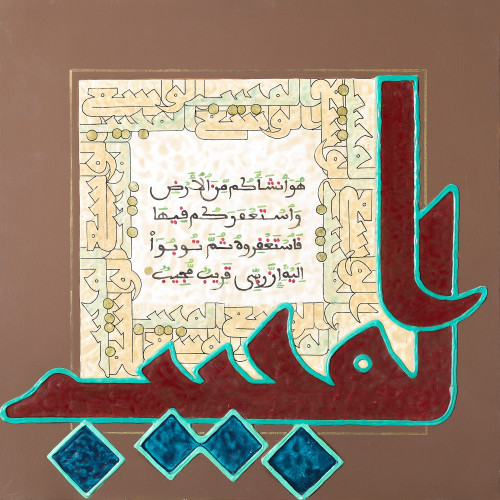 هو أنشأكم من الأرض
واستعمركم فيها
فاستغفروه ثم توبوا
إليه إن ربي قريب مجيب
المجيب